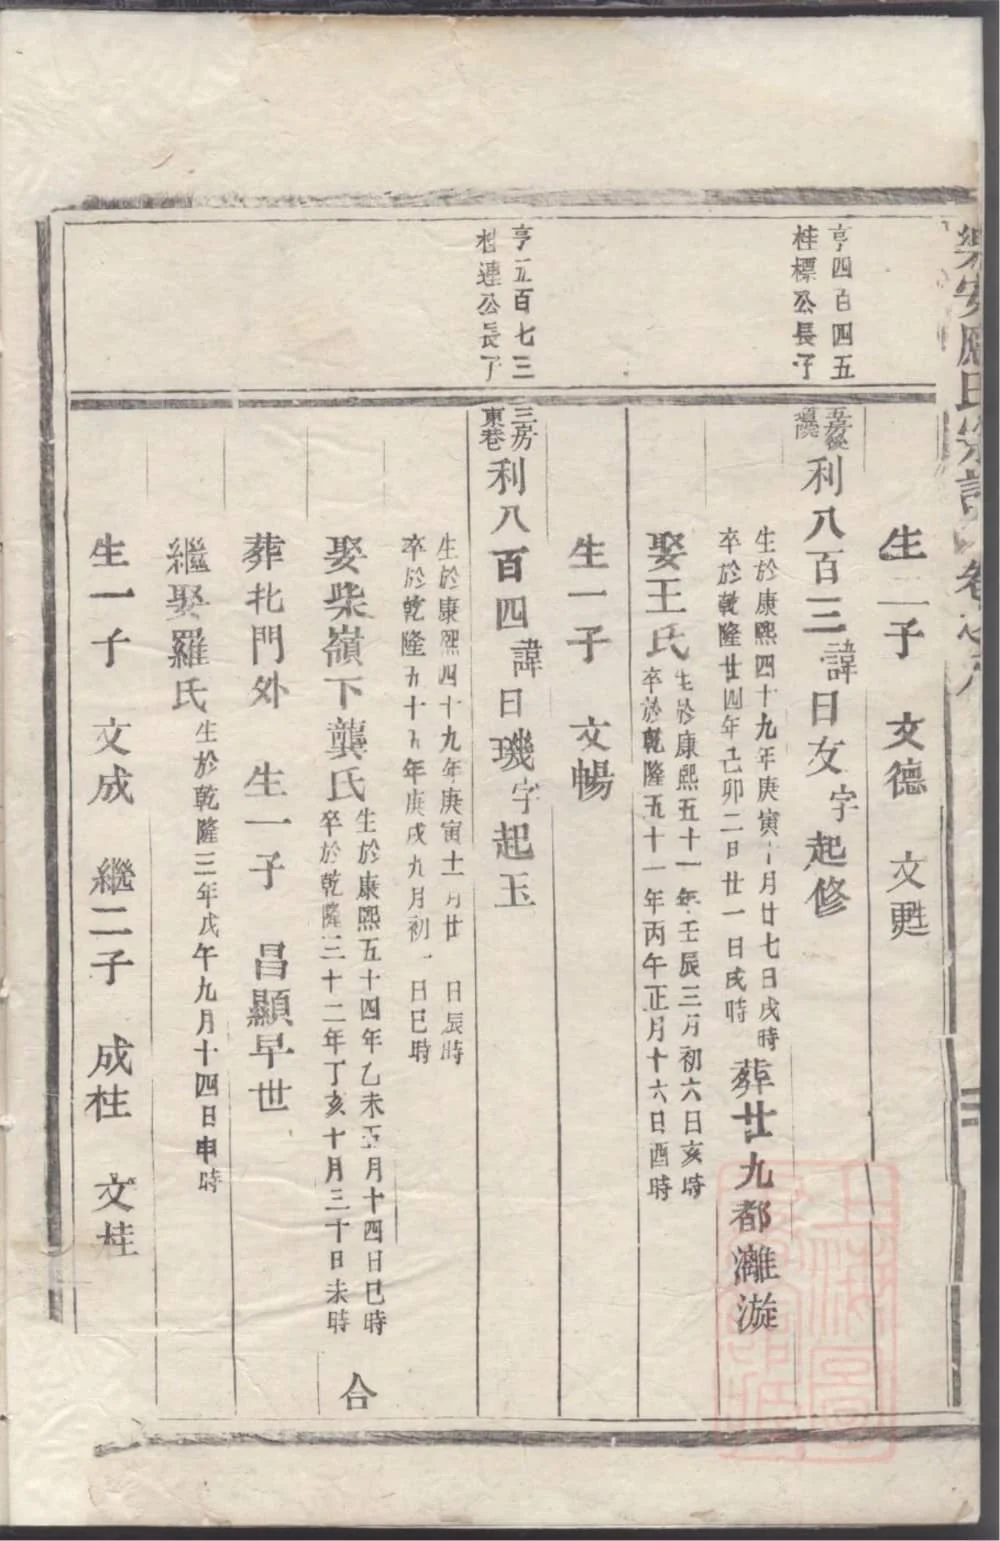 樂安應氏宗譜 卷之八
生二子 文德 文甦
亨四百四五
桂標公長子
五房後
利八百三 諱日女 字起修
生於康熙四十九年庚寅十月廿七日戌時
卒於乾隆廿四年己卯二日廿一日戌時
葬廿九都灕漩
娶王氏
生於康熙五十一年壬辰三月初六日亥時
卒於乾隆五十一年丙午正月十六日酉時
生一子 文暢
亨五百七三
桂連公長子
三房
東巷
利八百四 諱日璣 字起玉
生於康熙四十九年庚寅十一月廿 日辰時
卒於乾隆五十五年庚戌九月初一日巳時
娶柴嶺下龔氏
生於康熙五十四年乙未五月十四日巳時
卒於乾隆三十二年丁亥十月三十日未時
合
葬北門外 生一子 昌顯早世
繼娶羅氏 生於乾隆三年戊午九月十四日申時
生一子 文成 繼二子 成柱 文桂